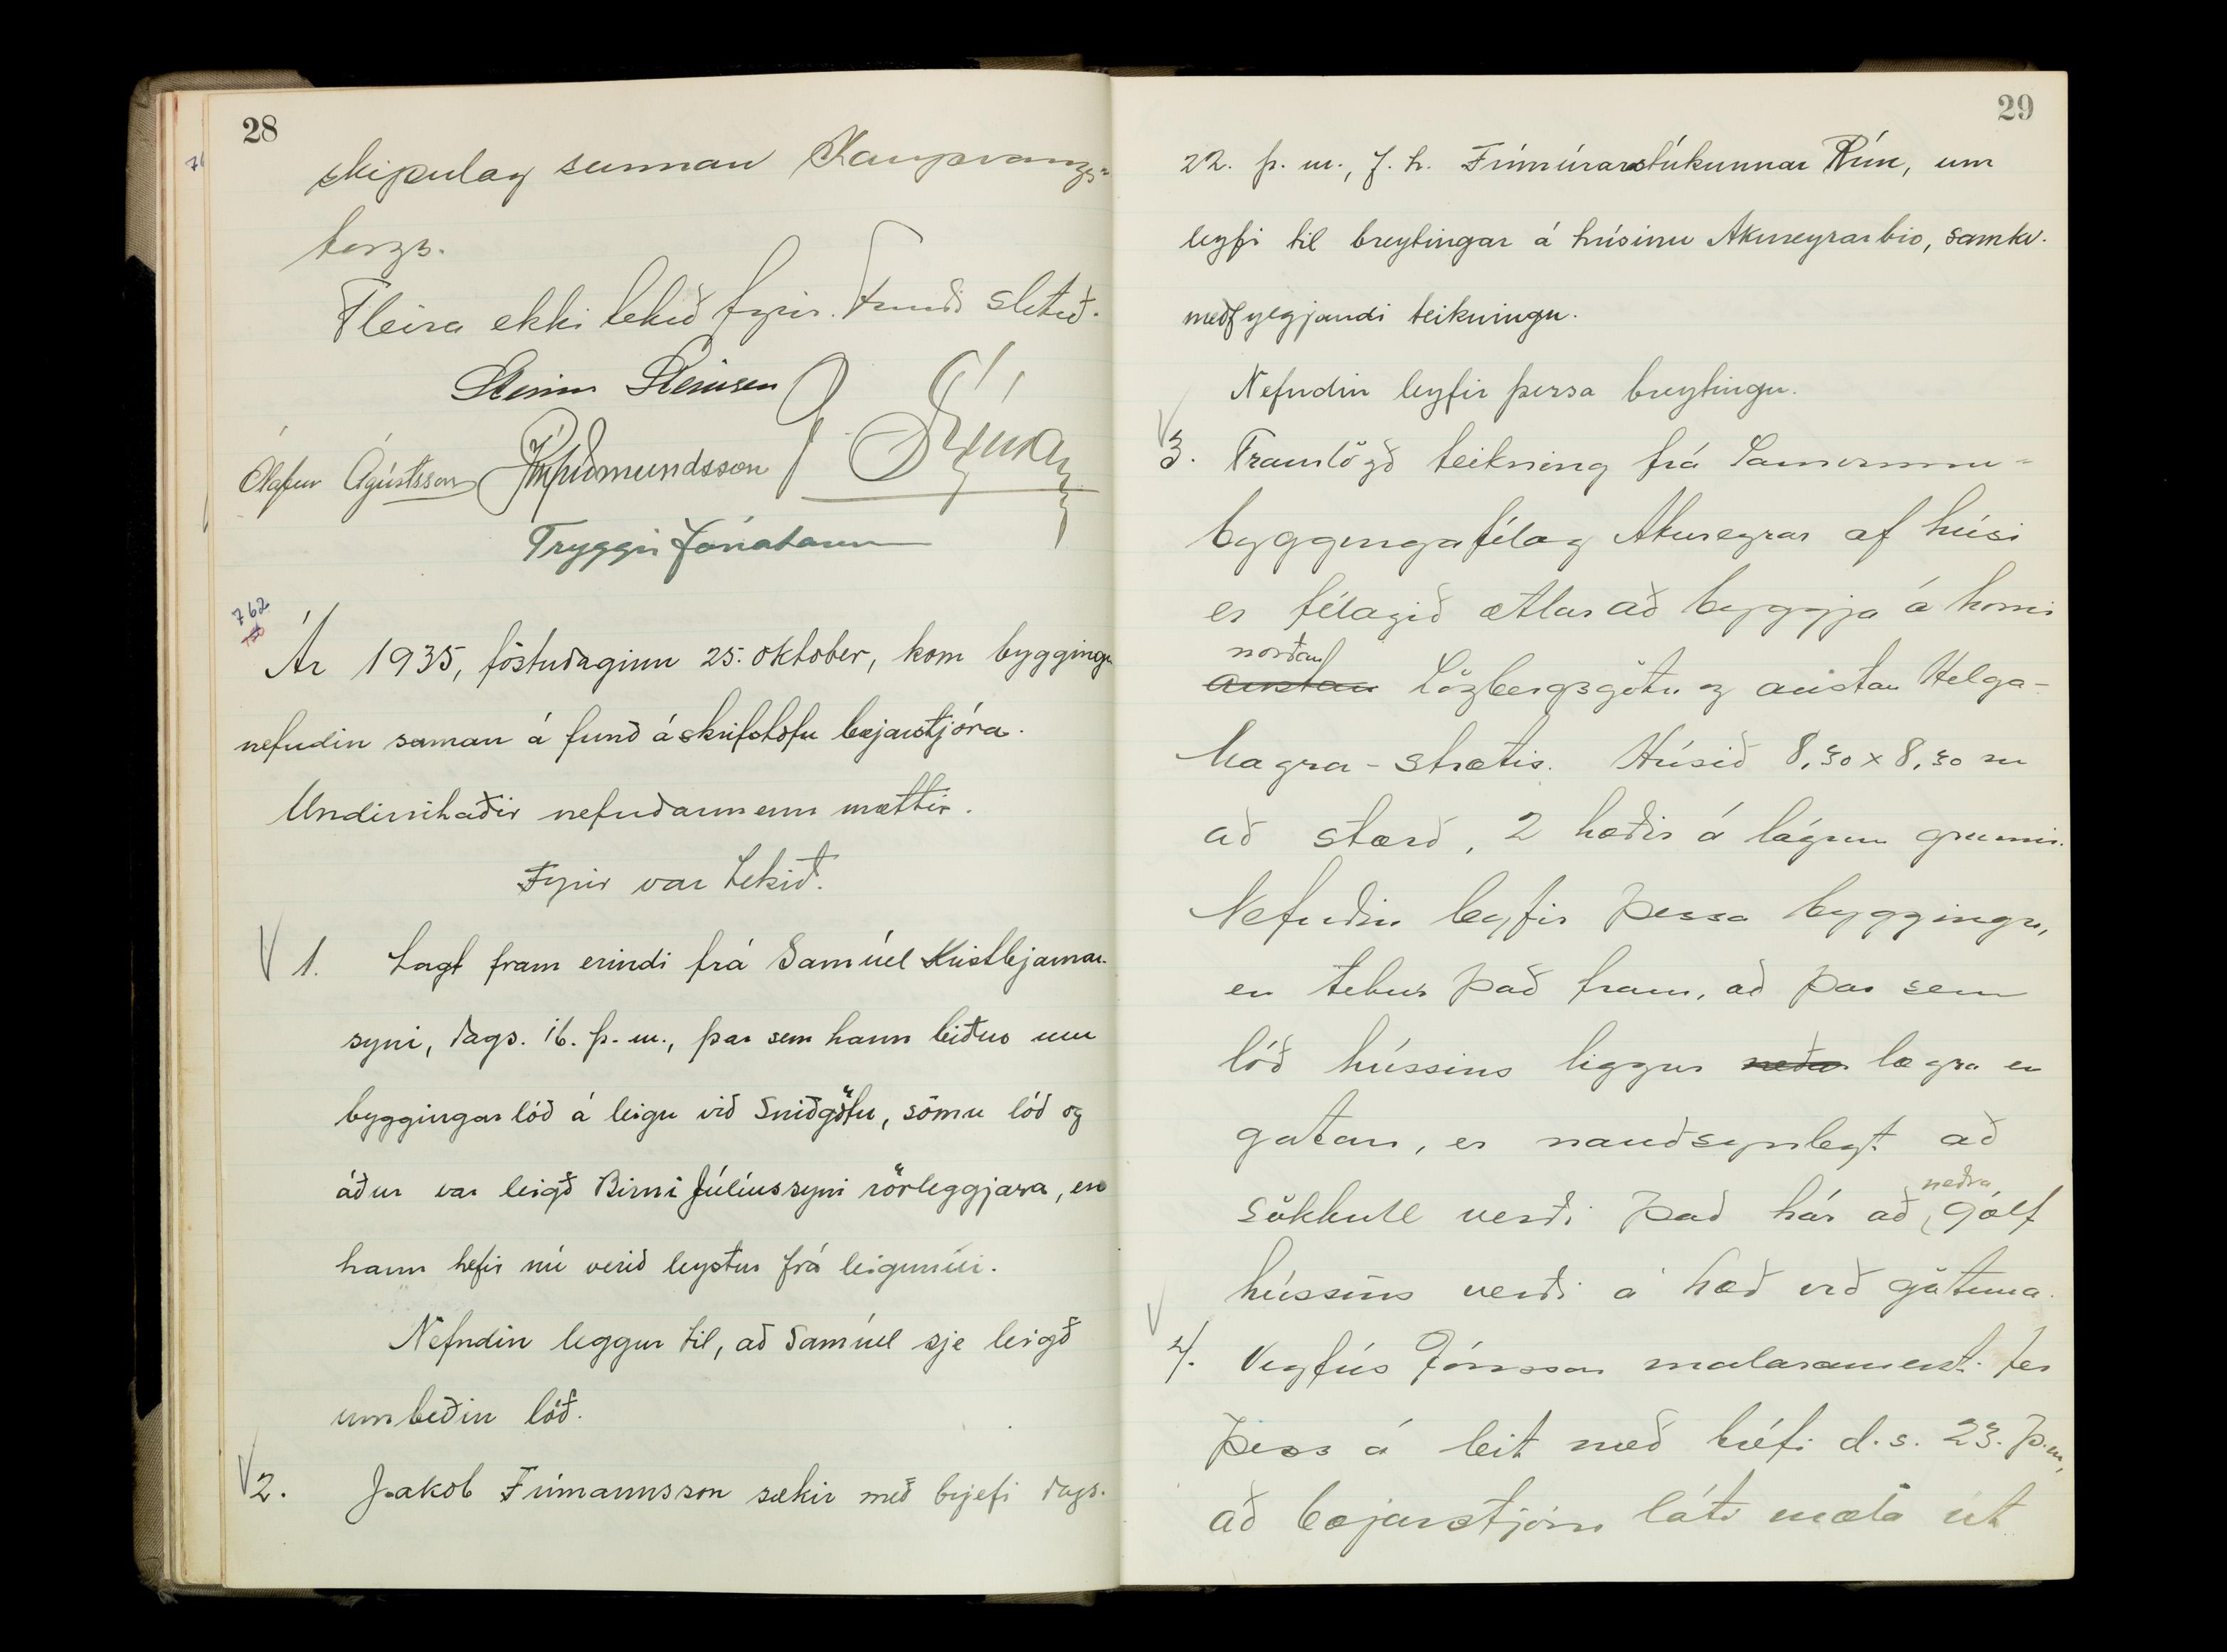 28
skipulag sunnan Kaupvangs=
torgs.
Fleira ekki tekið fyrir. Fundi slitið.
Steinn Steinsen
Ólafur Ágústsson
Tryggvi Jónatanss
762
Ár 1935, föstudaginn 25. október, kom bygginga
nefndin saman á fund á skrifstofu bæjarstjóra.
Undirritaðir nefndarmenn mættir.
Fyrir var tekið.
1. Lagt fram erindi frá Samúel Kristbjarnar-
syni, dags. 16. þ. m., þar sem hann biður um
byggingarlóð á leigu við Sniðgötu, sömu lóð og
áður var leigð Birni Júlíussyni rörleggjara, en
hann hefir nú verið leystur frá leigunni.
Nefndin leggur til, að Samúel sje leigð
umbeðin lóð.
2. Jakob Frímannsson sækir með brjefi dags.
29
22. þ. m., f. h. Frímúrarastúkunnar Rún, um
leyfi til breytingar á húsinu Akureyrarbio, samkv.
meðfylgjandi teikningu.
Nefndin leyfir þessa breytingu.
3. Framlögð teikning frá Samvinnu=
byggingafélag Akureyrar af húsi
er félagið ætlar að byggja á horni
norðan
austan Lögbergsgötu og austan Helga-
magra-strætis. Húsið 8,30 x 8,30 m
að stærð, 2 hæðir á lágum grunni.
Nefndin leyfir þessa byggingu,
en tekur það fram, að þar sem
lóð hússins liggur neðar lægra en
gatan, er nauðsynlegt að
neðra
sökkull verði það hár að gólf
hússins verði á hæð við götuna.
4. Vigfús Jónsson malaram. fer
þess á leit með bréfi d.s. 23. þ.m,
að bæjarstjórn láti mæla út